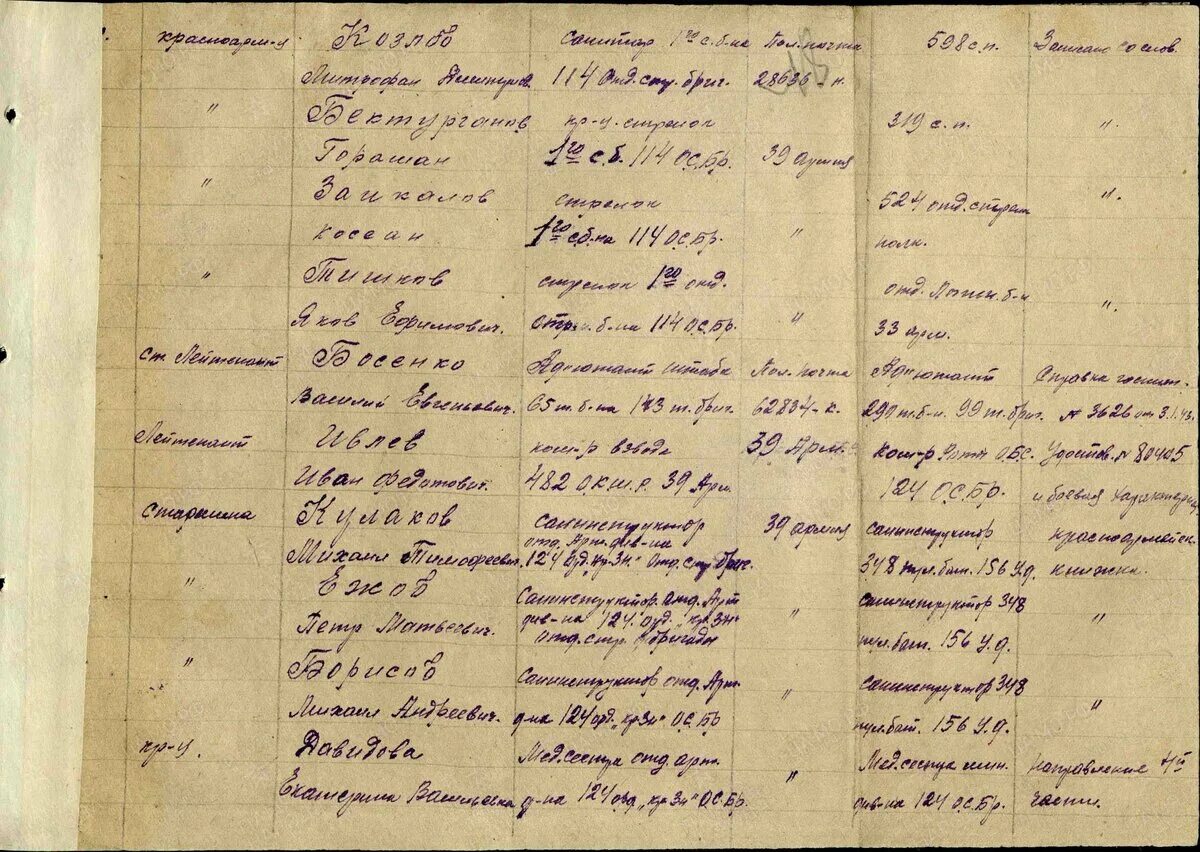 красноарм-ц Козлов санитар 1го с.б-на Пол. почта 598 с.п. Записано со слов.
Митрофан 114 Отд. стр. бриг. 28636-н.
" Бектурганов кр-ц. стрелок 319 с.п. "
1го с.б. 114 О.С.Бр. 39 армия
" Заикалов стрелок 524 отд. стрелк "
Косеан 1го с.б-на 114 О.С.Бр. " полк.
" Тишков стрелок 1го отд. отд. б-н "
Яков Ефимович. стр. б-на 114 О.С.Бр. " 33 арм.
ст. Лейтенант Босенко Адъютант штаба Пол. почта Адъютант Справка госпит.
Василий Евгеньевич. 65 т.б-на 173 т. бриг. 62804-к. 290 т.б-н. 99 т. бриг. № 3626 от 3.1.43.
Лейтенант Ивлев ком-р взвода 39 Арм. ком-р Роты О.Б.С. Удостов. № 80405
Иван Федотович. 482 О.К.Ш.Р. 39 Арм. 124 О.С.Бр. и боевая характерис.
старшина Кулаков санинструктор 39 армия санинструктор красноармейск.
отд. Арт. див-на
Михаил Тимофеевич. 124 Орд. "Кр. Зн" Отд. стр. бриг. 348 пул. бат. 156 У.д. книжка.
" Ежов Санинструктор. отд. Арт " санинструктор 348 "
див-на 124 орд. "Кр. Зн"
Петр Матвеевич. отд. стр. бригады пул. бат. 156 У.д.
" Борисов Санинструктор отд. Арт. " санинструктор 348 "
Михаил Андреевич. д-на 124 орд. "Кр Зн" О.С.Бр пул. бат. 156 У.д.
кр-ц. Давидова Мед. сестра отд. арт. " Мед. сестра мин. направление
Екатерина Васильевна д-на 124 орд. "Кр Зн" О.С.Бр. див-на 124 О.С.Бр. части.